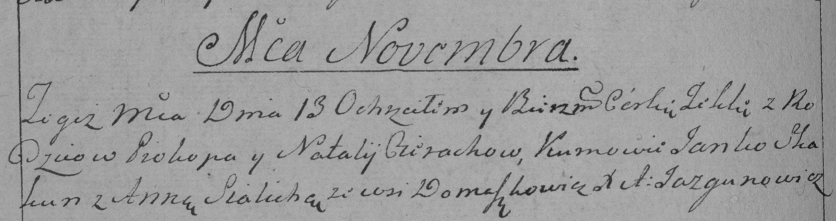 Mca Novembra.
Tegoż Mca Dnia 13 Ochrzciłem y Bierzm Córkę Teklę z Ro
dziców Prokopa y Natalij Czerachow, Kumowie Janko Ska
kun z Anną ze wsi Domaszkowicz X A: Jazgunowicz